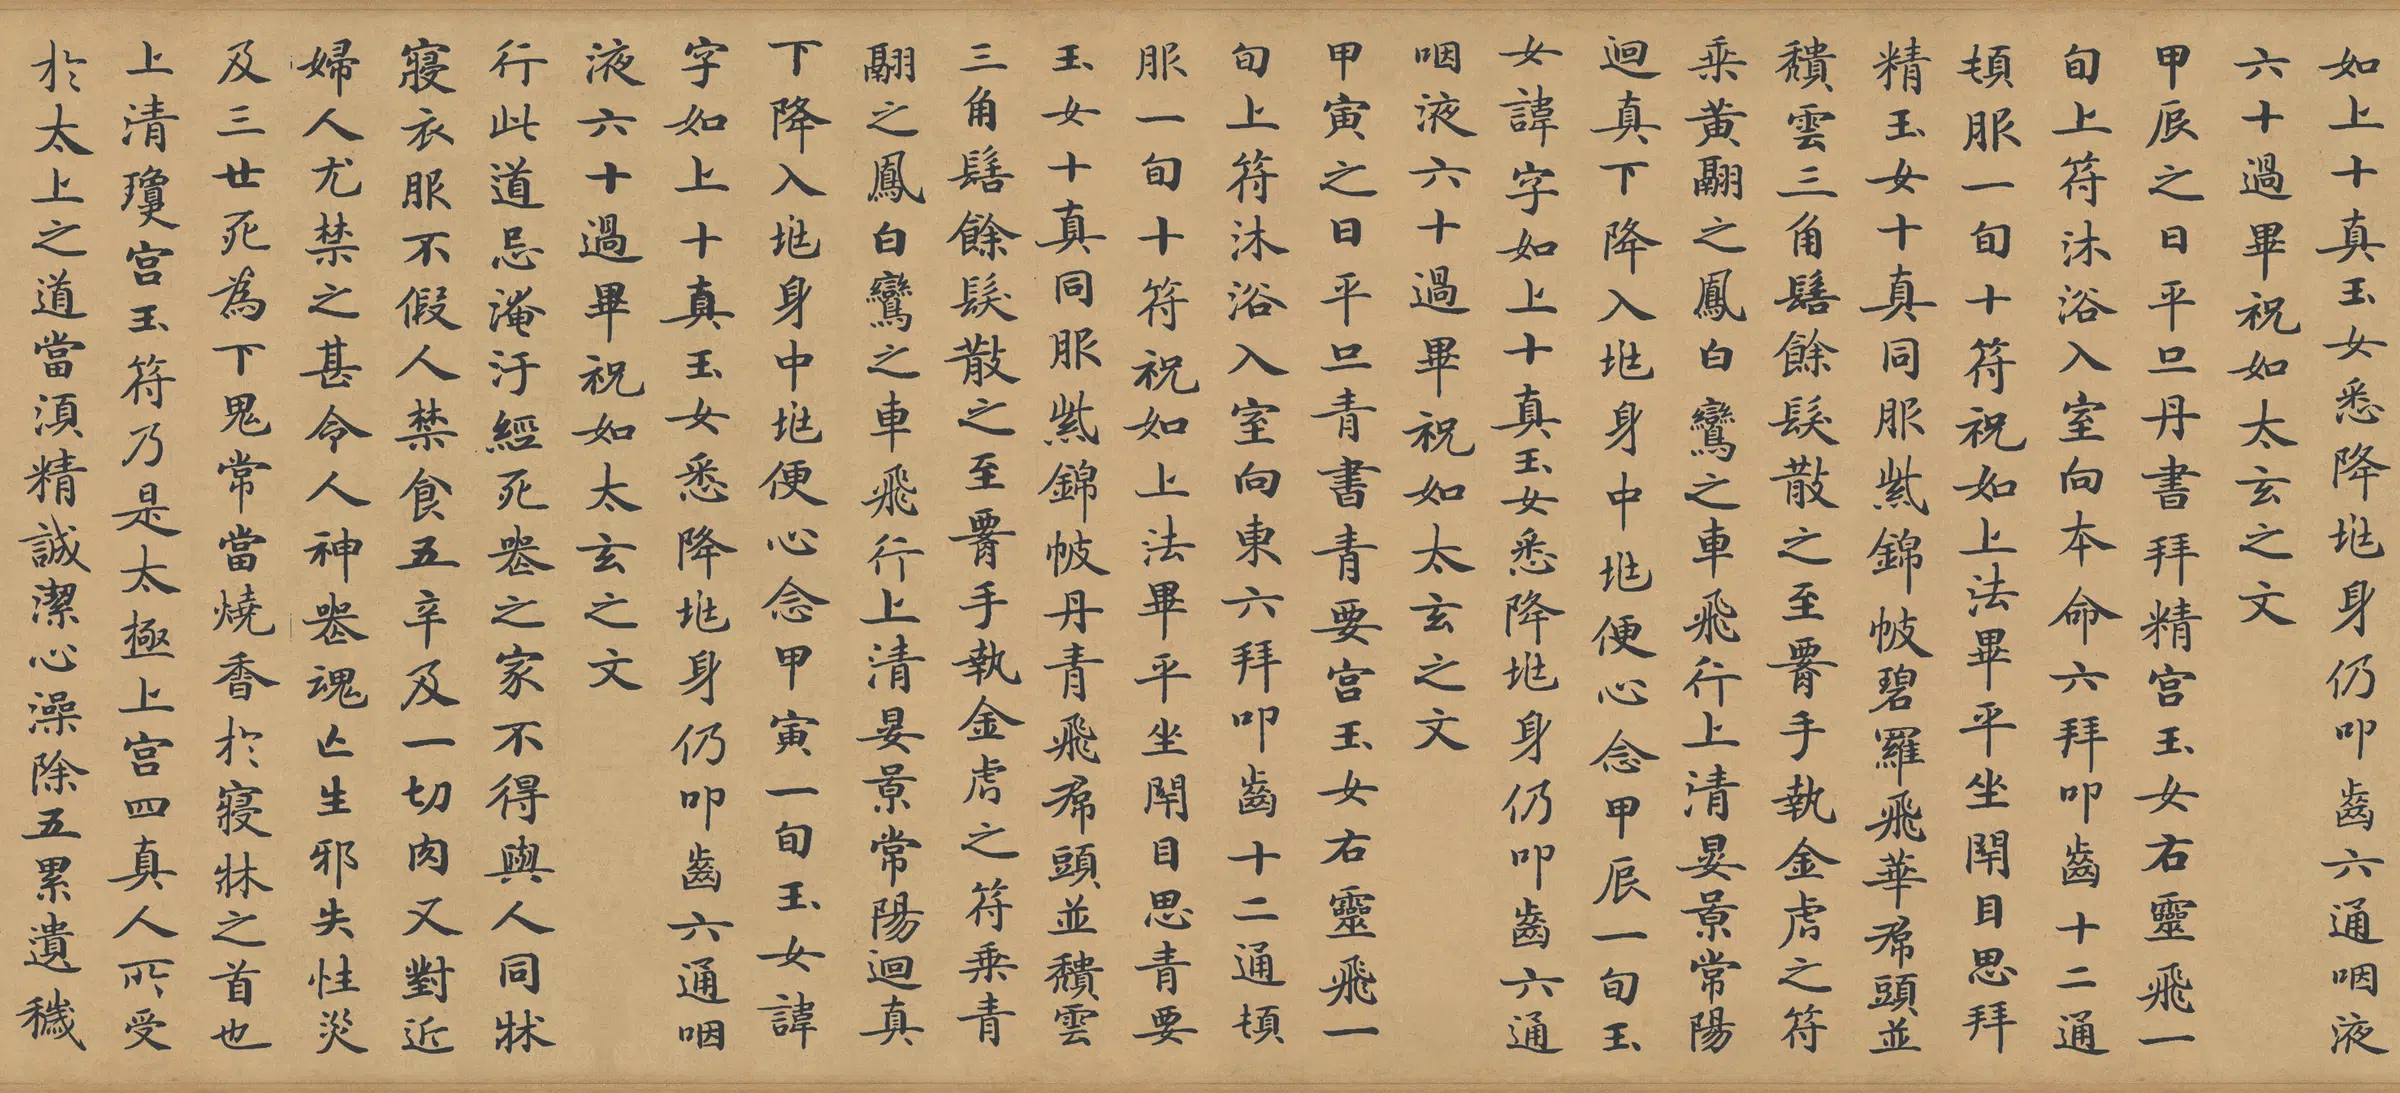 如上十真玉女悉降巸身仍叩齒六通咽液
六十過畢祝如太玄之文
甲辰之日平旦丹書拜精宮玉女右靈飛一
旬上符沐浴入室向本命六拜叩齒十二通
頓服一旬十符祝如上法畢平坐閉目思拜
精玉女十真同服紫錦帔碧羅飛華帬頭並
穨雲三角髻餘髮散之至䯒手執金虎之符
乘黃翮之鳳白鸞之車飛行上清晏景常陽
迴真下降入巸身中巸便心念甲辰一旬玉
女諱字如上十真玉女悉降巸身仍叩齒六通
咽液六十過畢祝如太玄之文
甲寅之日平旦青書青要宮玉女右靈飛一
旬上符沐浴入室向東六拜叩齒十二通頓
服一旬十符祝如上法畢平坐閉目思青要
玉女十真同服紫錦帔丹青飛帬頭並穨雲
三角髻餘髮散之至䯒手執金虎之符乘青
翮之鳳白鸞之車飛行上清晏景常陽迴真
下降入巸身中巸便心念甲寅一旬玉女諱
字如上十真玉女悉降巸身仍叩齒六通咽
液六十過畢祝如太玄之文
行此道忌淹汙經死喪之家不得與人同牀
寢衣服不假人禁食五辛及一切肉又對近
婦人尤禁之甚令人神喪魂亡生邪失性災
及三世死為下鬼常當燒香於寢牀之首也
上清瓊宮玉符乃是太極上宮四真人所受
於太上之道當須精誠潔心澡除五累遺穢